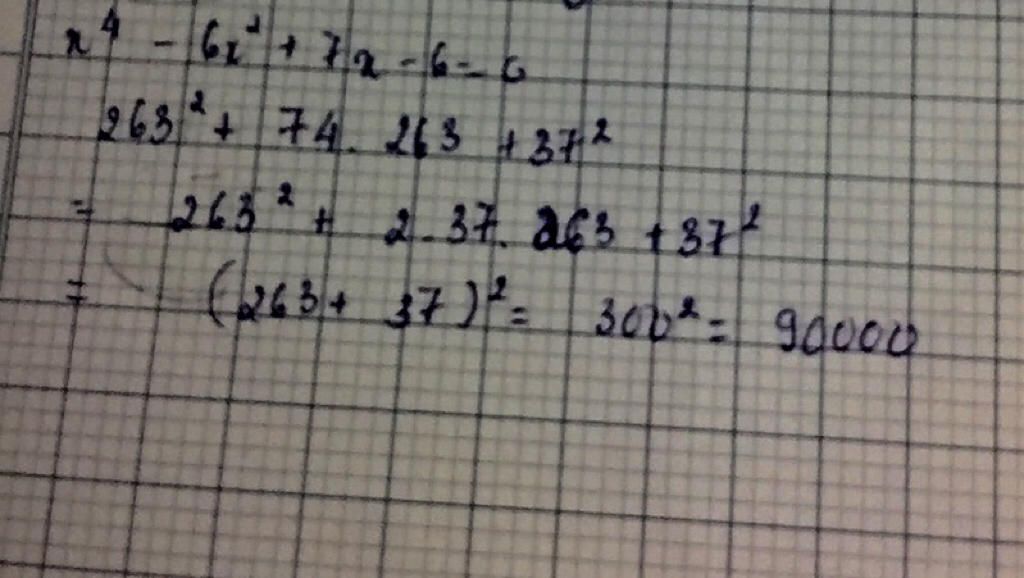 x⁴ - 6x² + 7x - 6 = 0
263² + 74. 263 + 37²
= 263² + 2.37. 263 + 37²
= (263 + 37)² = 300² = 90000